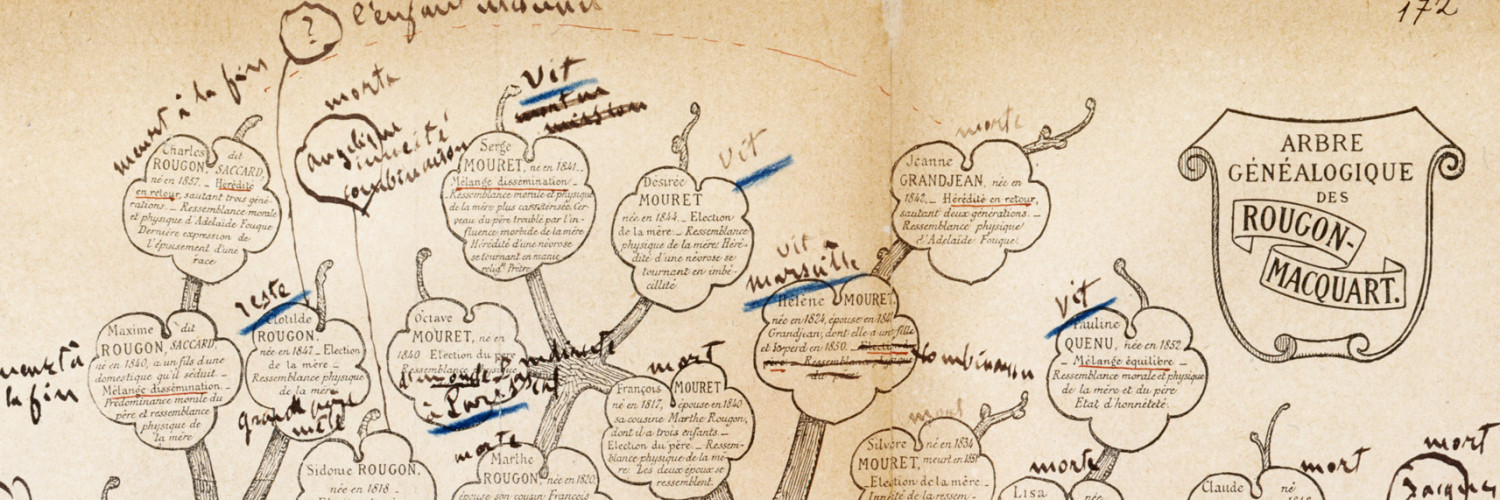 172
?
l'enfant inconnu
meurt à la fin
morte
Angélique
innéité
combinaison
Vit
Vit
morte
Charles dit
ROUGON, SACCARD,
né en 1857. _ Hérédité
en retour, sautant trois géné-
rations. _ Ressemblance morale
et physique d'Adelaïde Fouque
Dernière expression de
l'épuisement d'une
race
Serge
MOURET, né en 1841._
Mélange dissémination _
Ressemblance morale et physique
de la mère plus caractérisée. Cer-
veau du père troublé par l'in-
fluence morbide de la mère
Hérédité d'une névrose
se tournant en manie
relig.se Prêtre
Désirée
MOURET
née en 1844. _ Election
de la mère _ Ressemblance
physique de la mère: Héré-
dité d'une névrose se
tournant en imbé-
cillité
Jeanne
GRANDJEAN, née en
1842. _ Hérédité en retour,
sautant deux générations. _
Ressemblance physique
d'Adelaïde Fouque.
ARBRE
GÉNÉALOGIQUE
DES
ROUGON-
MACQUART.
meurt à
la fin
Maxime dit
ROUGON, SACCARD
né en 1840, a un fils d'une
domestique qu'il séduit. _
Mélange dissémination _
Prédominance morale du
père et ressemblance
physique de
la mère
reste
Clotilde
ROUGON.
née en 1847 _ Election
de la mère _
Ressemblance physique
de la mère
Octave
MOURET, né en
1840 Election du père
Ressemblance physique
à Paris
vit
marseille
Hélène MOURET,
née en 1824, épouse en 1840
Grandjean, dont elle a une fille
et le perd en 1850. _ Election
Ressemblance
du père
Combinaison
vit
Pauline
QUENU, née en 1852
_ Mélange équilibre _
Ressemblance morale et physique
de la mère et du père
Etat d'honnêteté.
mort
François MOURET
né en 1817, épouse en 1840
sa cousine Marthe Rougon,
dont il a trois enfants. _
Election du père _ Ressem-
blance physique de la mè-
re. Les deux époux se
ressemblent.
Sidonie ROUGON.
née en 1818 _
morte
Marthe
ROUGON, née en 1820,
épouse son cousin François
mort
Silvère né en 1834
MOURET, meurt en 1851
_ Election de la mère _
Innéité de la ressem-
morte
Lisa
née
mort
Claude né
mort
Jacques